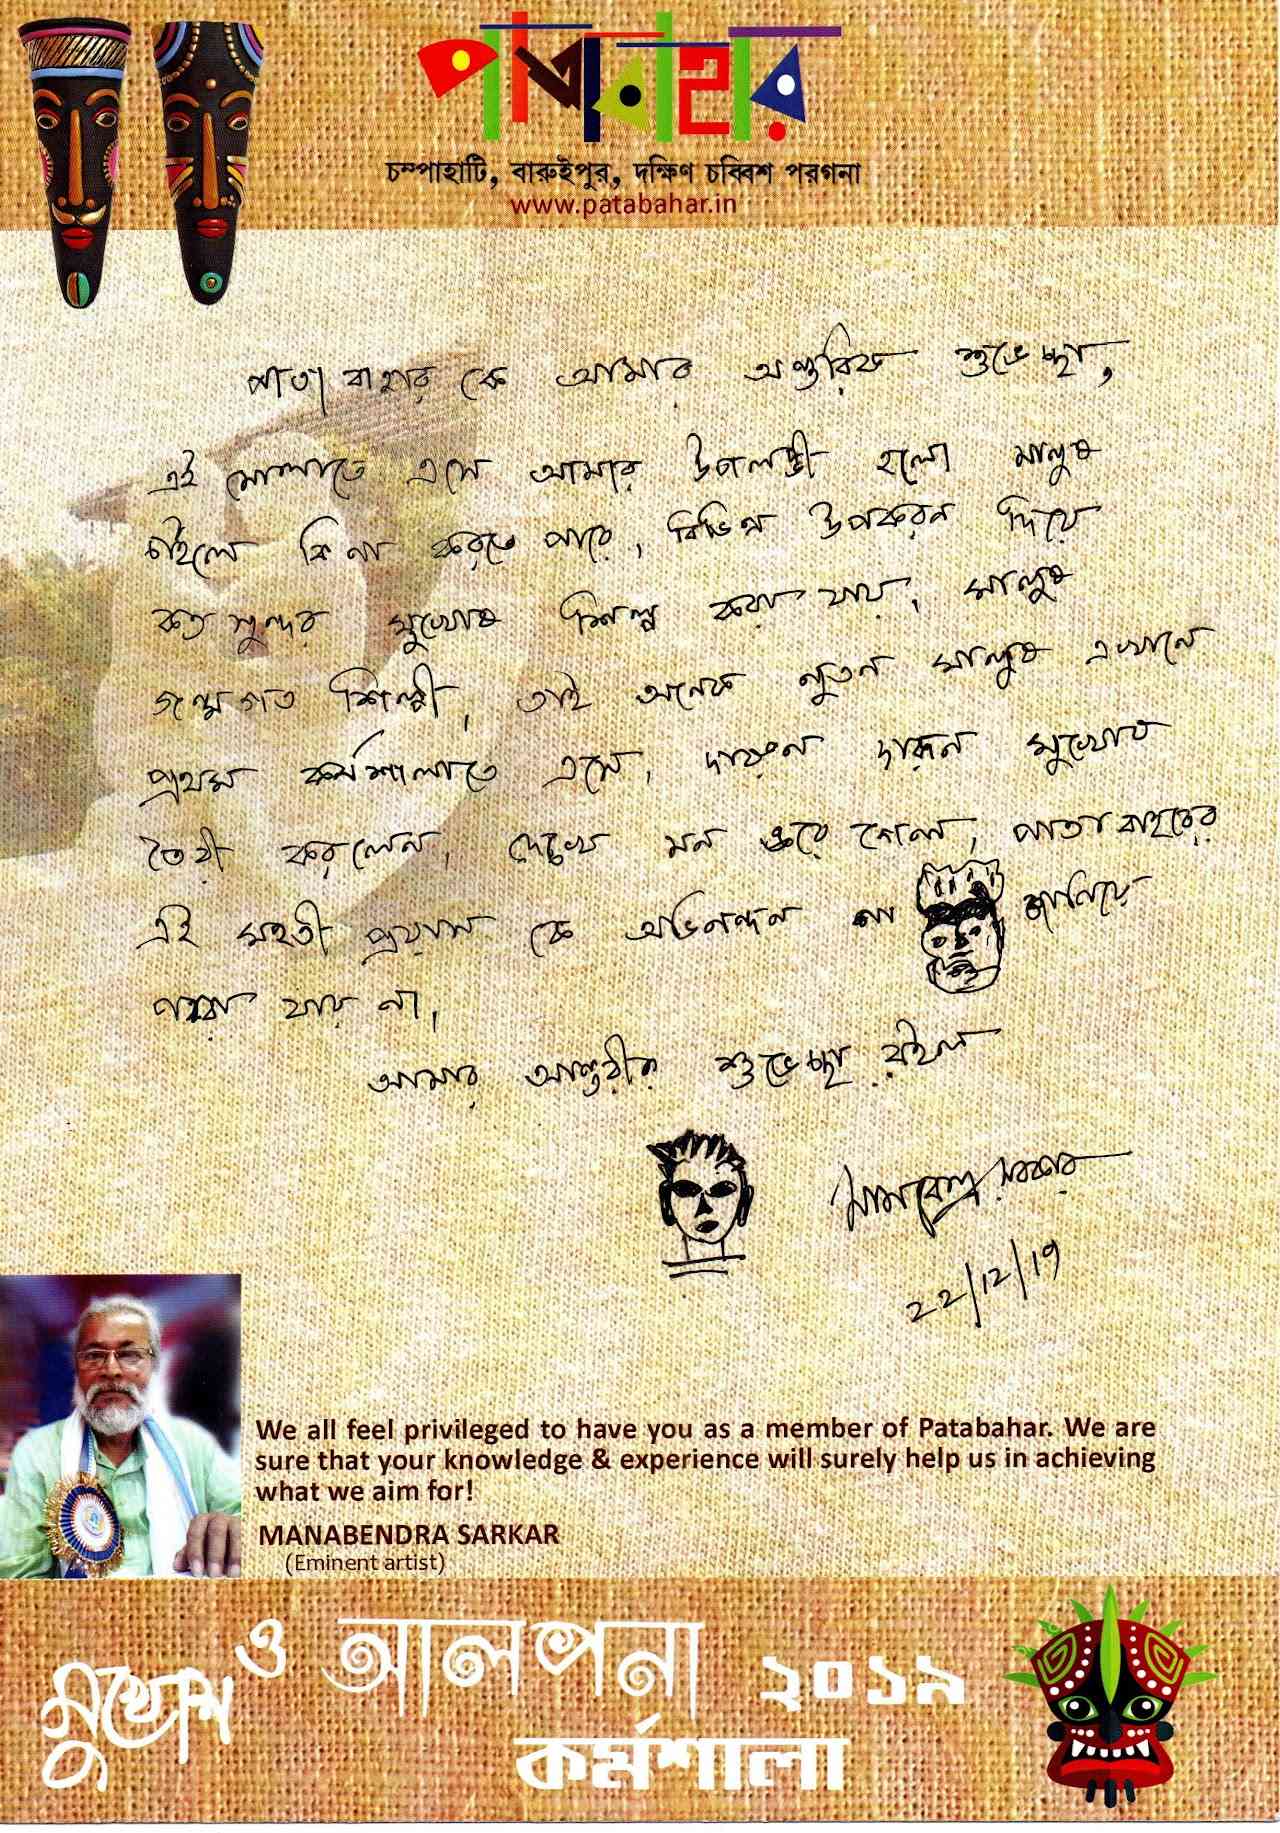 পাতাবাহার
চম্পাহাটি, বারুইপুর, দক্ষিণ চব্বিশ পরগনা
www.patabahar.in
পাতা বাহার কে আমার অন্তরিক শুভেচ্ছা,
এই মেলাতে এসে আমার উপলব্ধী হলো মানুষ
চাইলে কি না করতে পারে, বিভিন্ন উপকরন দিয়ে
কত সুন্দর মুখোষ শিল্প করা যায়, মানুষ
জন্মগত শিল্পী, তাই অনেক নুতন মানুষ এখানে
প্রথম কর্মশালাতে এসে, দারুন দারুন মুখোষ
তৈরী করলেন, দেখে মন ভরে গেল, পাতা বাহারের
এই মহতী প্রয়াস কে অভিনন্দন না জানিয়ে
পারা যায় না,
আমার আন্তরীক শুভেচ্ছা রইল
মানবেন্দ্র সরকার
22/12/19
We all feel privileged to have you as a member of Patabahar. We are
sure that your knowledge & experience will surely help us in achieving
what we aim for!
MANABENDRA SARKAR
(Eminent artist)
মুখোশ ও আলপনা ২০১৯
কর্মশালা